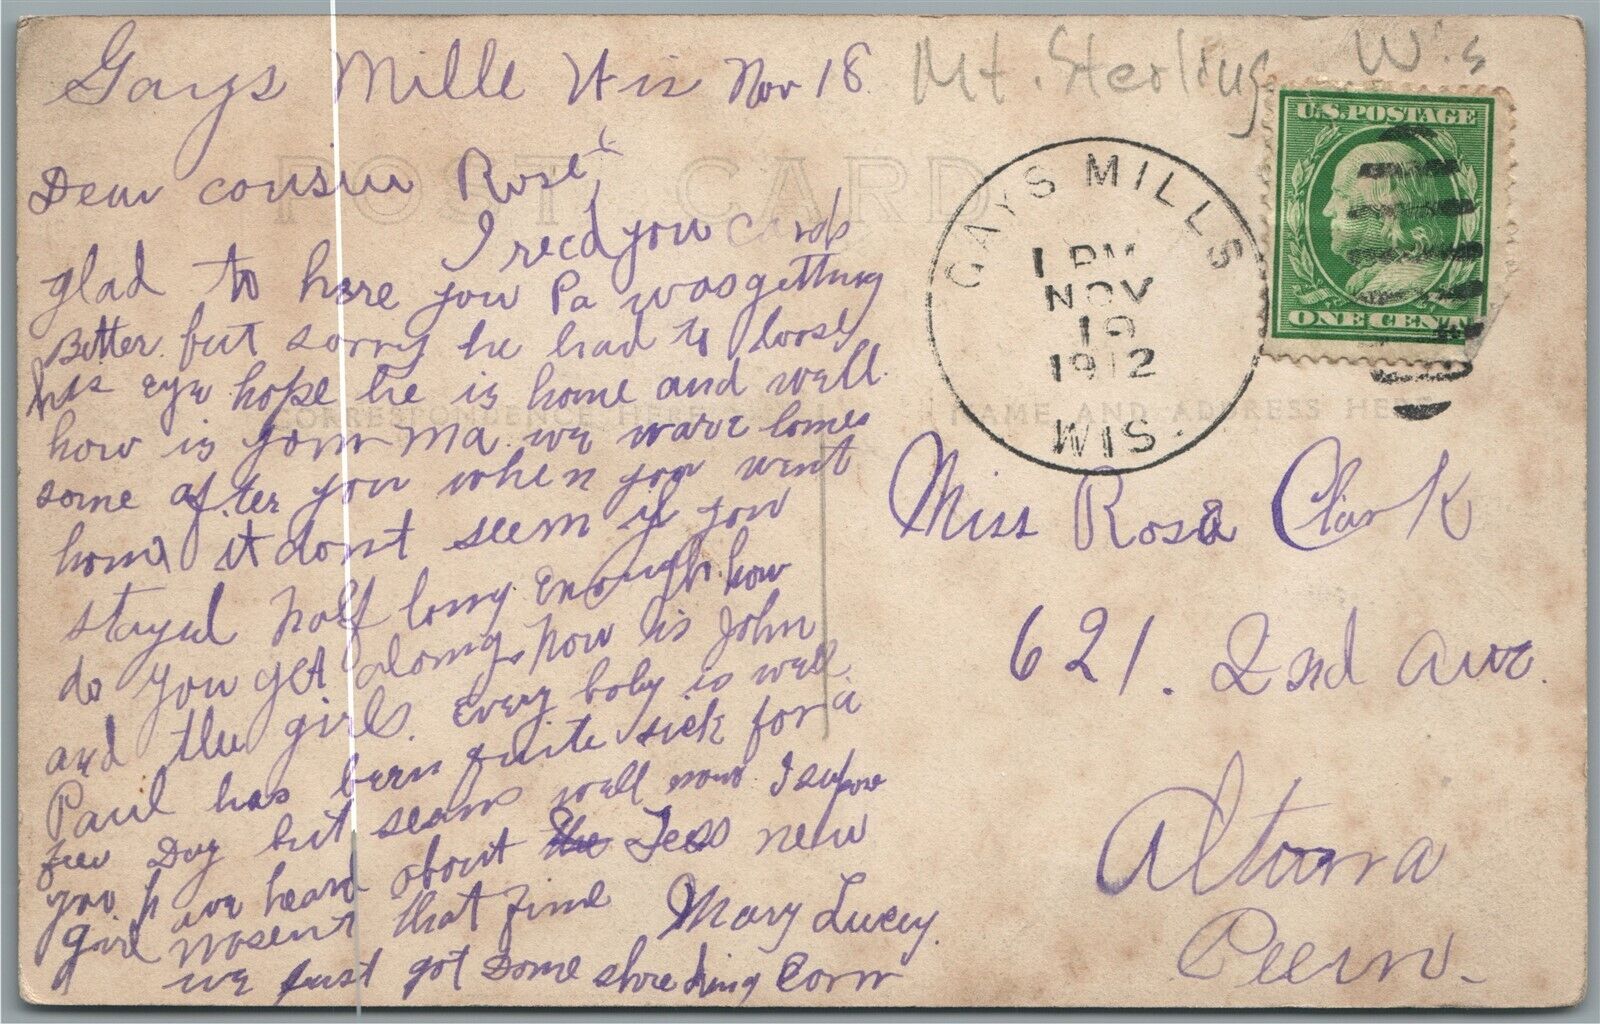 Gays Mille Wis Nov 18
Mt. Sterling Wis
POST CARD
Dear cousin Rose
I recd you cards
glad to here you Pa was getting
Better. but sorry he had to loose
his eye hope he is home and well.
how is your Ma. we ware lonesome
some after you when you went
home it dont seem if you
stayed half long enough. how
do you get along, how is John
and the girls. Every boby is well.
Paul has bern quite sick for a
few Day but seams well now. I supose
you have heard about the Tess new
girl wosent that fine
Mary Lucey.
we just got some shredding corn
CORRESPONDENCE HERE
NAME AND ADDRESS HERE
GAYS MILLS
1 PM
NOV
19
1912
WIS.
U.S. POSTAGE
ONE CENT
Miss Rosa Clark
621. 2nd ave.
Altoona
Peenn.